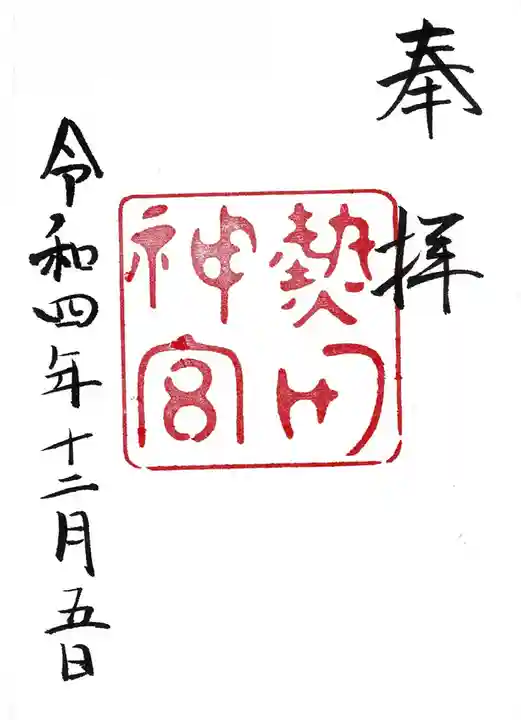 奉拝
熱田
神宮
令和四年十二月五日